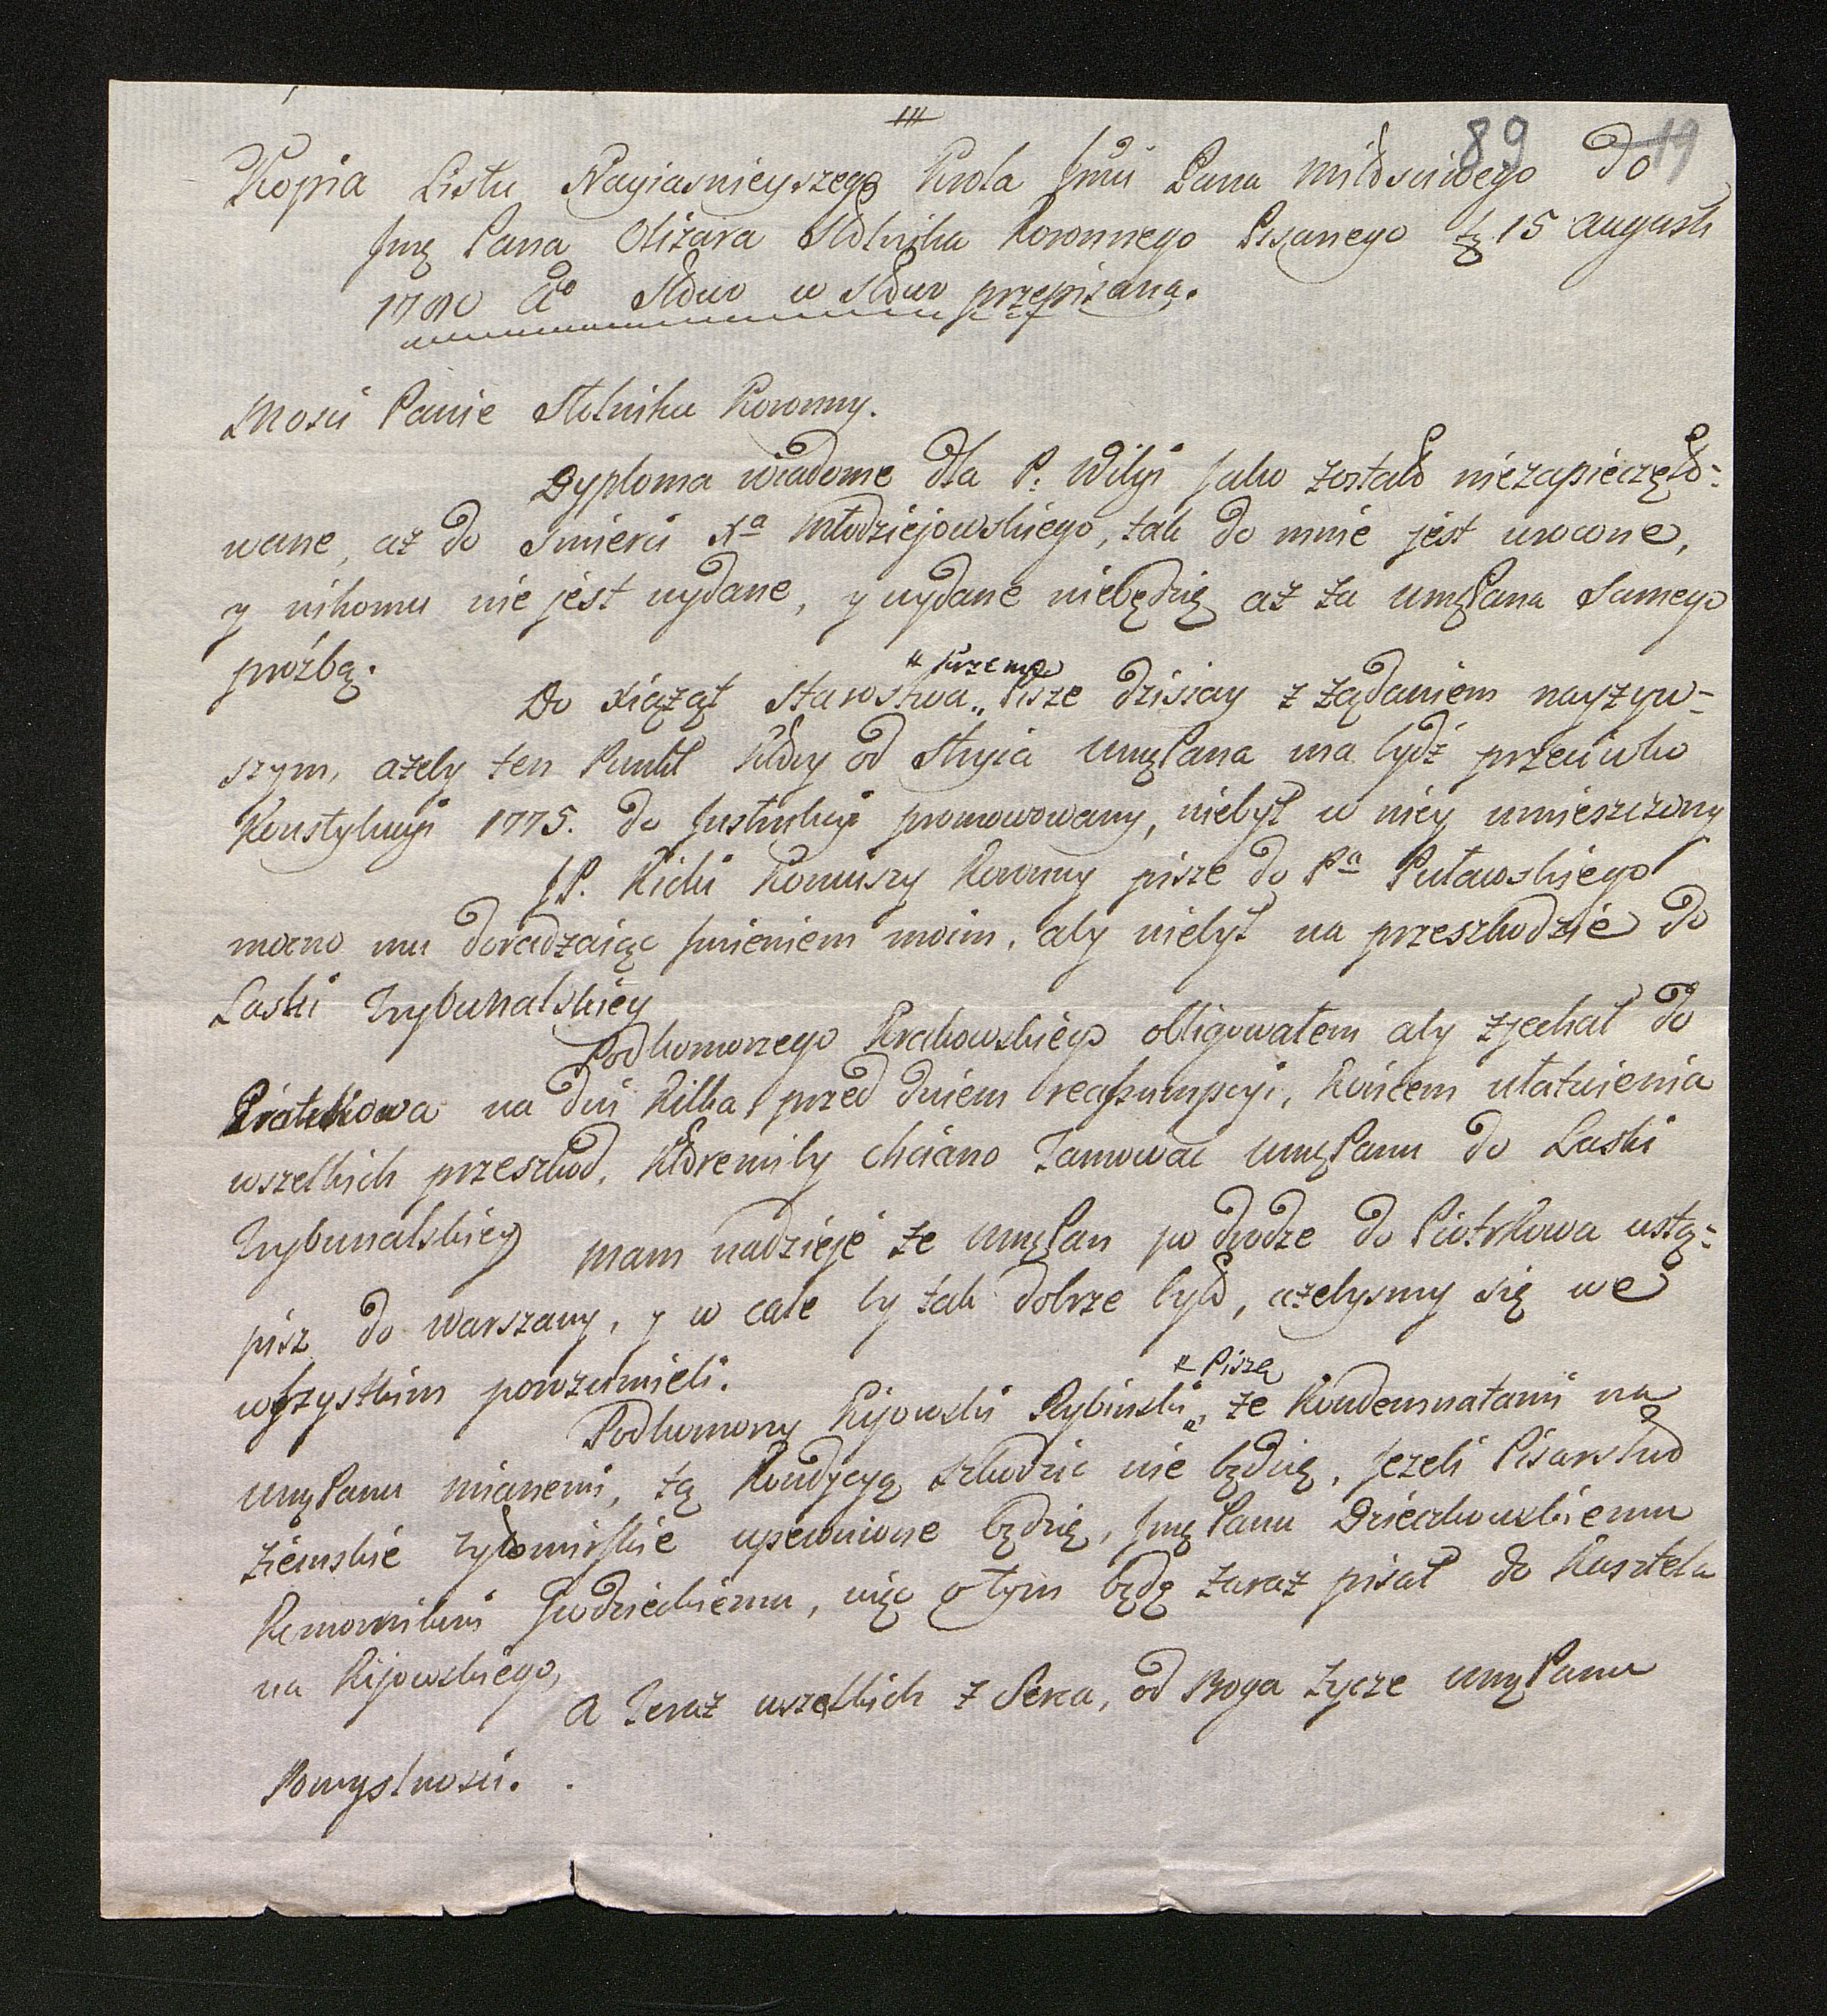 III
89 19
Kopia Listu Nayiasnieyszego Krola Jmci Pana Miłosciwego do
Jmę Pana Olizara Stolnika Koronnego Pisanego 15 Augusti
1780 Ao Słowo w Słowo przepisana.
Mosci Panie Stolniku Koronny.
Dyploma wiadome dla P. Wilgi Jako zostało niezapieczęto-
wane, aż do Smierci Xa Młodziejowskiego, tak do mnie jest wrocone,
y nikomu nie jest wydane, y wydane niebędzię aż za WmęPana Samego
prożbą.
Do Xiąząt Starostwa „ Pisze dzisiay z żądaniem nayżyw-
szym, ażeby ten Punkt Ktory od Stryia WmęPana ma bydź przeciwko
Konstytucyi 1775. do Jnstrukcyi promowowany, niebył w niey umieszczony
JP. Kicki Koniuszy Koronny pisze do Pa Puławskiego
mocno mu doradzaiąc Jmieniem moim, aby niebył na przeszkodzie do
Laski Trybunalskiey
Podkomorzego Krakowskiego obligowałem aby zjechał do
Piotrkowa na dni Kilka przed dniem reassumpcyi, Końcem ułatwienia
wszelkich przeszkod, Ktoremiby chciano Tamować WmęPanu do Laski
Trybunalskiey
Mam nadzieję że WmęPan po drodze do Piotrkowa wstą-
pisz do Warszawy, y w cale by tak dobrze było, ażebysmy się we
wszystkim porozumieli.
" Piszę
Podkomorzy Kijowski Rybinski „ że Kondemnatami na
WmęPanu mianemi, tą Kondycyą szkodzic nie będzię, Jeżeli Pisarstwo
Ziemskie Żytomirskie upewnione będzię, Jmę Panu Drzeckowskiemu
Komornikowi Grodzieckiemu, więc o tym będę zaraz pisał do Kasztela
na Kijowskiego,
A Teraz wszelkich z Serca, od Boga życze WmęPanu
Pomyslnosci.